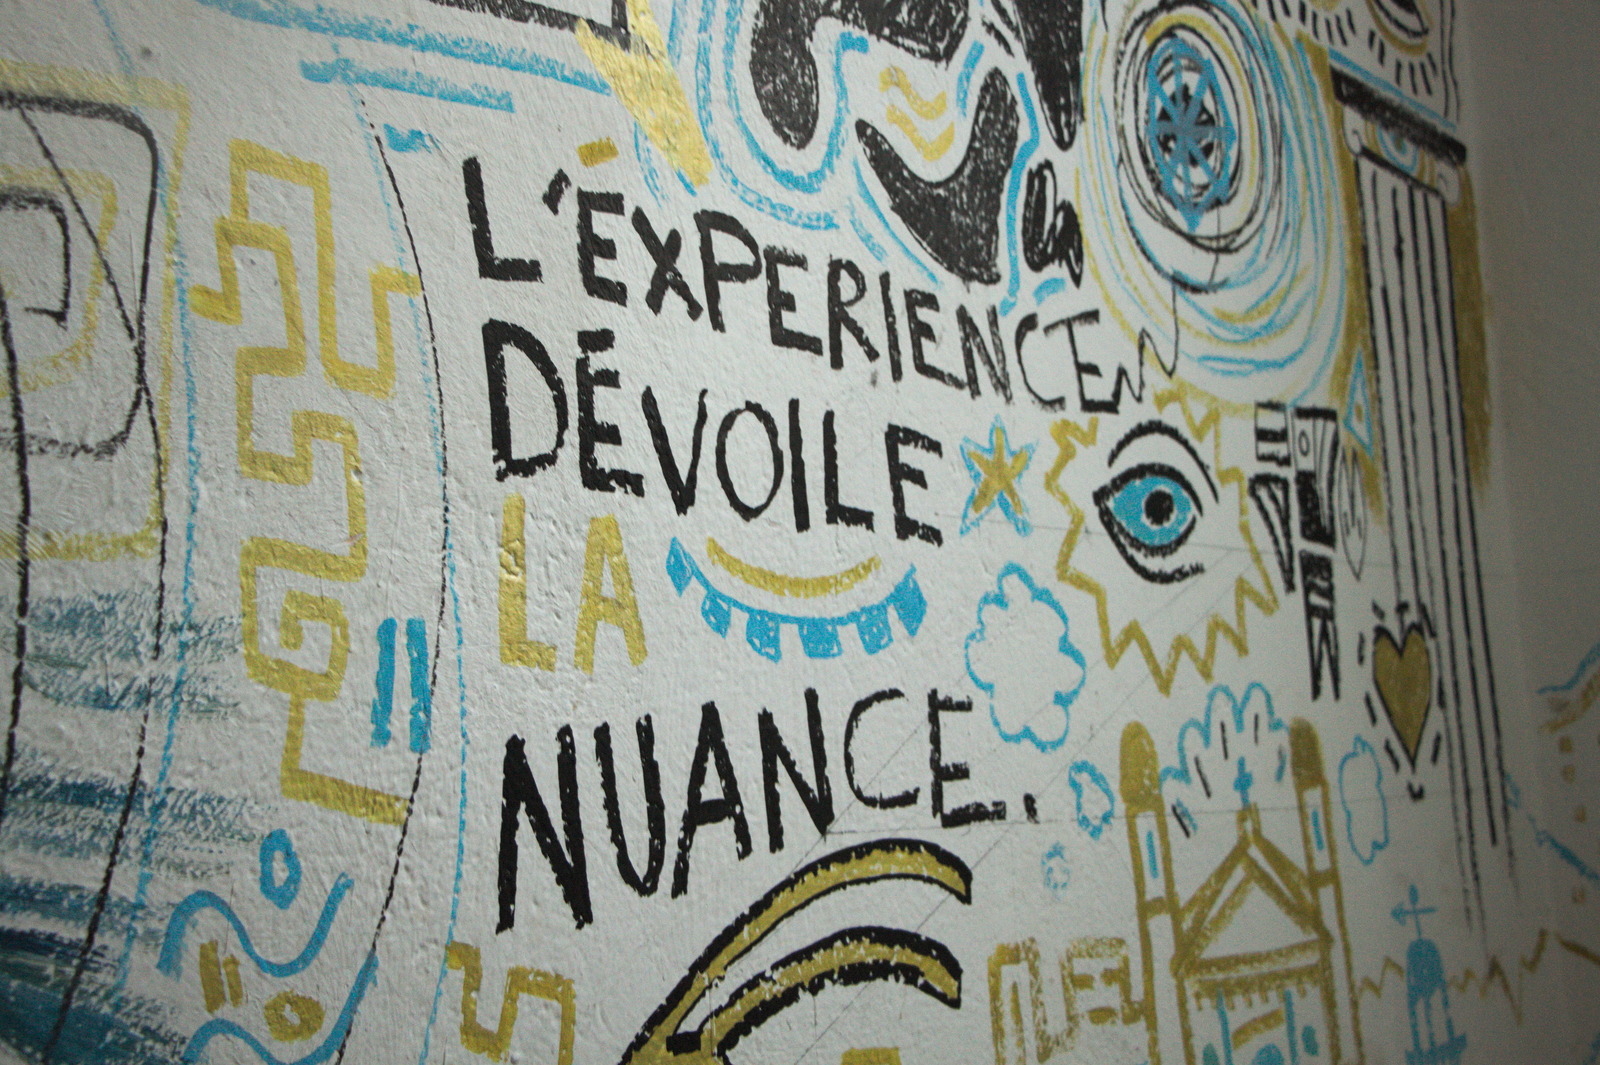 L'ÉXPERIENCE
DÉVOILE
LA
NUANCE.